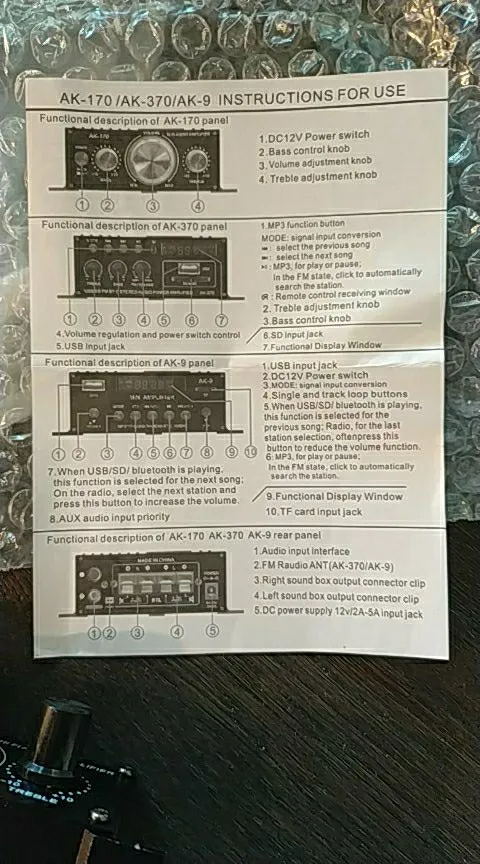 AK-170 /AK-370/AK-9 INSTRUCTIONS FOR USE
Functional description of AK-170 panel
AK-170
1.DC12V Power switch
2.Bass control knob
3.Volume adjustment knob
4. Treble adjustment knob
① ② ③ ④
Functional description of AK-370 panel
1.MP3 function button
MODE: signal input conversion
: select the previous song
: select the next song
: MP3, for play or pause;
In the FM state, click to automatically
search the station.
: Remote control receiving window
2. Treble adjustment knob
3.Bass control knob
① ② ③ ④ ⑤ ⑥ ⑦
4.Volume regulation and power switch control
5.USB Input jack
6.SD Input jack
7.Functional Display Window
Functional description of AK-9 panel
AK-9
1.USB input jack
2.DC12V Power switch
3.MODE: signal input conversion
4.Single and track loop buttons
5.When USB/SD/ bluetooth is playing,
this function is selected for the
previous song; Radio, for the last
station selection, oftenpress this
button to reduce the volume function.
6: MP3, for play or pause;
In the FM state, click to automatically
search the station.
① ② ③ ④ ⑤ ⑥ ⑦ ⑧ ⑨ ⑩
7.When USB/SD/ bluetooth is playing,
this function is selected for the next song;
On the radio, select the next station and
press this button to increase the volume.
8.AUX audio input priority
9.Functional Display Window
10.TF card input jack
Functional description of AK-170 AK-370 AK-9 rear panel
MADE IN CHINA
1.Audio input interface
2.FM Raudio ANT(AK-370/AK-9)
3.Right sound box output connector clip
4.Left sound box output connector clip
5.DC power supply 12v/2A-5A input jack
① ② ③ ④ ⑤
TREBLE
10